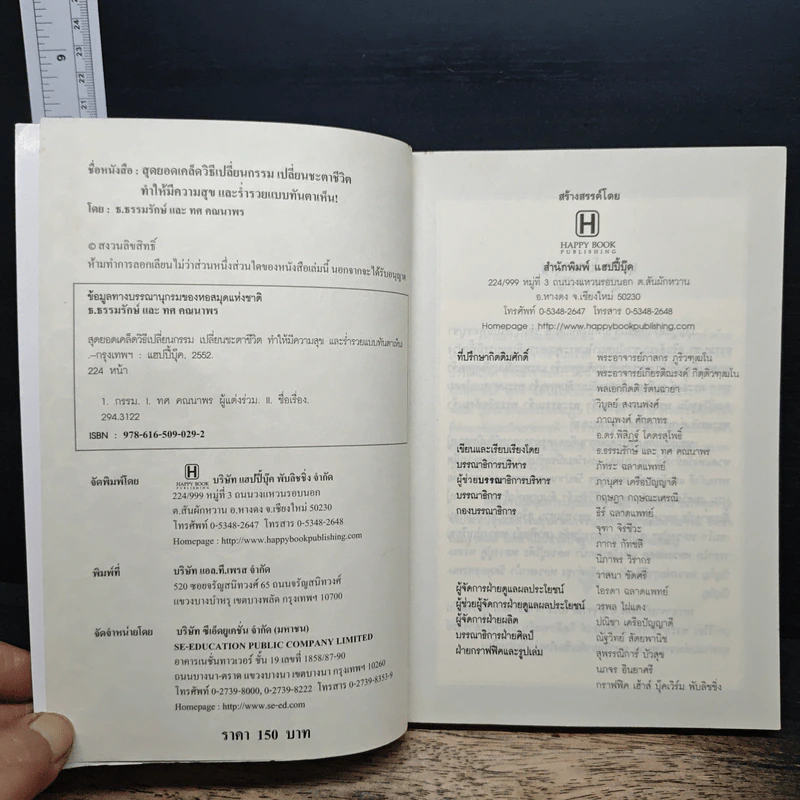 ชื่อหนังสือ : สุดยอดเคล็ดวิธีเปลี่ยนกรรม เปลี่ยนชะตาชีวิต
ทำให้มีความสุข และร่ำรวยแบบทันตาเห็น!
โดย : ธ.ธรรมรักษ์ และ ทศ คณนาพร
© สงวนลิขสิทธิ์
ห้ามทำการลอกเลียนไม่ว่าส่วนหนึ่งส่วนใดของหนังสือเล่มนี้ นอกจากจะได้รับอนุญาต
ข้อมูลทางบรรณานุกรมของหอสมุดแห่งชาติ
ธ.ธรรมรักษ์ และ ทศ คณนาพร
สุดยอดเคล็ดวิธีเปลี่ยนกรรม เปลี่ยนชะตาชีวิต ทำให้มีความสุข และร่ำรวยแบบทันตาเห็น
.–กรุงเทพฯ : แฮปปี้บุ๊ค, 2552.
224 หน้า
1. กรรม. I. ทศ คณนาพร ผู้แต่งร่วม. II. ชื่อเรื่อง.
294.3122
ISBN : 978-616-509-029-2
จัดพิมพ์โดย H HAPPY BOOK PUBLISHING บริษัท แฮปปี้บุ๊ค พับลิชชิ่ง จำกัด
224/999 หมู่ที่ 3 ถนนวงแหวนรอบนอก
ต.สันผักหวาน อ.หางดง จ.เชียงใหม่ 50230
โทรศัพท์ 0-5348-2647 โทรสาร 0-5348-2648
Homepage : http://www.happybookpublishing.com
พิมพ์ที่ บริษัท แอล.ที.เพรส จำกัด
520 ซอยจรัญสนิทวงศ์ 65 ถนนจรัญสนิทวงศ์
แขวงบางบำหรุ เขตบางพลัด กรุงเทพฯ 10700
จัดจำหน่ายโดย บริษัท ซีเอ็ดยูเคชั่น จำกัด (มหาชน)
SE-EDUCATION PUBLIC COMPANY LIMITED
อาคารเนชั่นทาวเวอร์ ชั้น 19 เลขที่ 1858/87-90
ถนนบางนา-ตราด แขวงบางนา เขตบางนา กรุงเทพฯ 10260
โทรศัพท์ 0-2739-8000, 0-2739-8222 โทรสาร 0-2739-8353-9
Homepage : http://www.se-ed.com
ราคา 150 บาท
สร้างสรรค์โดย
H
HAPPY BOOK
PUBLISHING
สำนักพิมพ์ แฮปปี้บุ๊ค
224/999 หมู่ที่ 3 ถนนวงแหวนรอบนอก ต.สันผักหวาน
อ.หางดง จ.เชียงใหม่ 50230
โทรศัพท์ 0-5348-2647 โทรสาร 0-5348-2648
Homepage : http://www.happybookpublishing.com
ที่ปรึกษากิตติมศักดิ์ พระอาจารย์ภาสกร ภูริวฑฺฒโน
พระอาจารย์เกียรติณรงค์ กิตฺติวฑฺฒโน
พลเอกกิตติ รัตนฉายา
วิบูลย์ สงวนพงศ์
ภาณุพงศ์ ศักดาทร
อ.ดร.พิสิฏฐ์ โคตรสุโพธิ์
เขียนและเรียบเรียงโดย ธ.ธรรมรักษ์ และ ทศ คณนาพร
บรรณาธิการบริหาร ภัทระ ฉลาดแพทย์
ผู้ช่วยบรรณาธิการบริหาร ภานุศร เครือปัญญาดี
บรรณาธิการ กฤษฎา กฤษณะเศรณี
กองบรรณาธิการ ธีร์ ฉลาดแพทย์
จุฑา จิรชีวะ
ภากร กัทชลี
นิภาพร วิรากร
วาสนา ชัดศรี
ผู้จัดการฝ่ายดูแลผลประโยชน์ ไอรดา ฉลาดแพทย์
ผู้ช่วยผู้จัดการฝ่ายดูแลผลประโยชน์ วรพล ไผ่แดง
ผู้จัดการฝ่ายผลิต ปณิชา เครือปัญญาดี
บรรณาธิการฝ่ายศิลป์ ณัฐวิทย์ สัตยพานิช
ฝ่ายกราฟฟิคและรูปเล่ม สุพรรณิการ์ บัวสุข
นภจร อินยาศรี
กราฟฟิค เฮ้าส์ บุ๊คเวิร์ม พับลิชชิ่ง
9
24
23
22
21